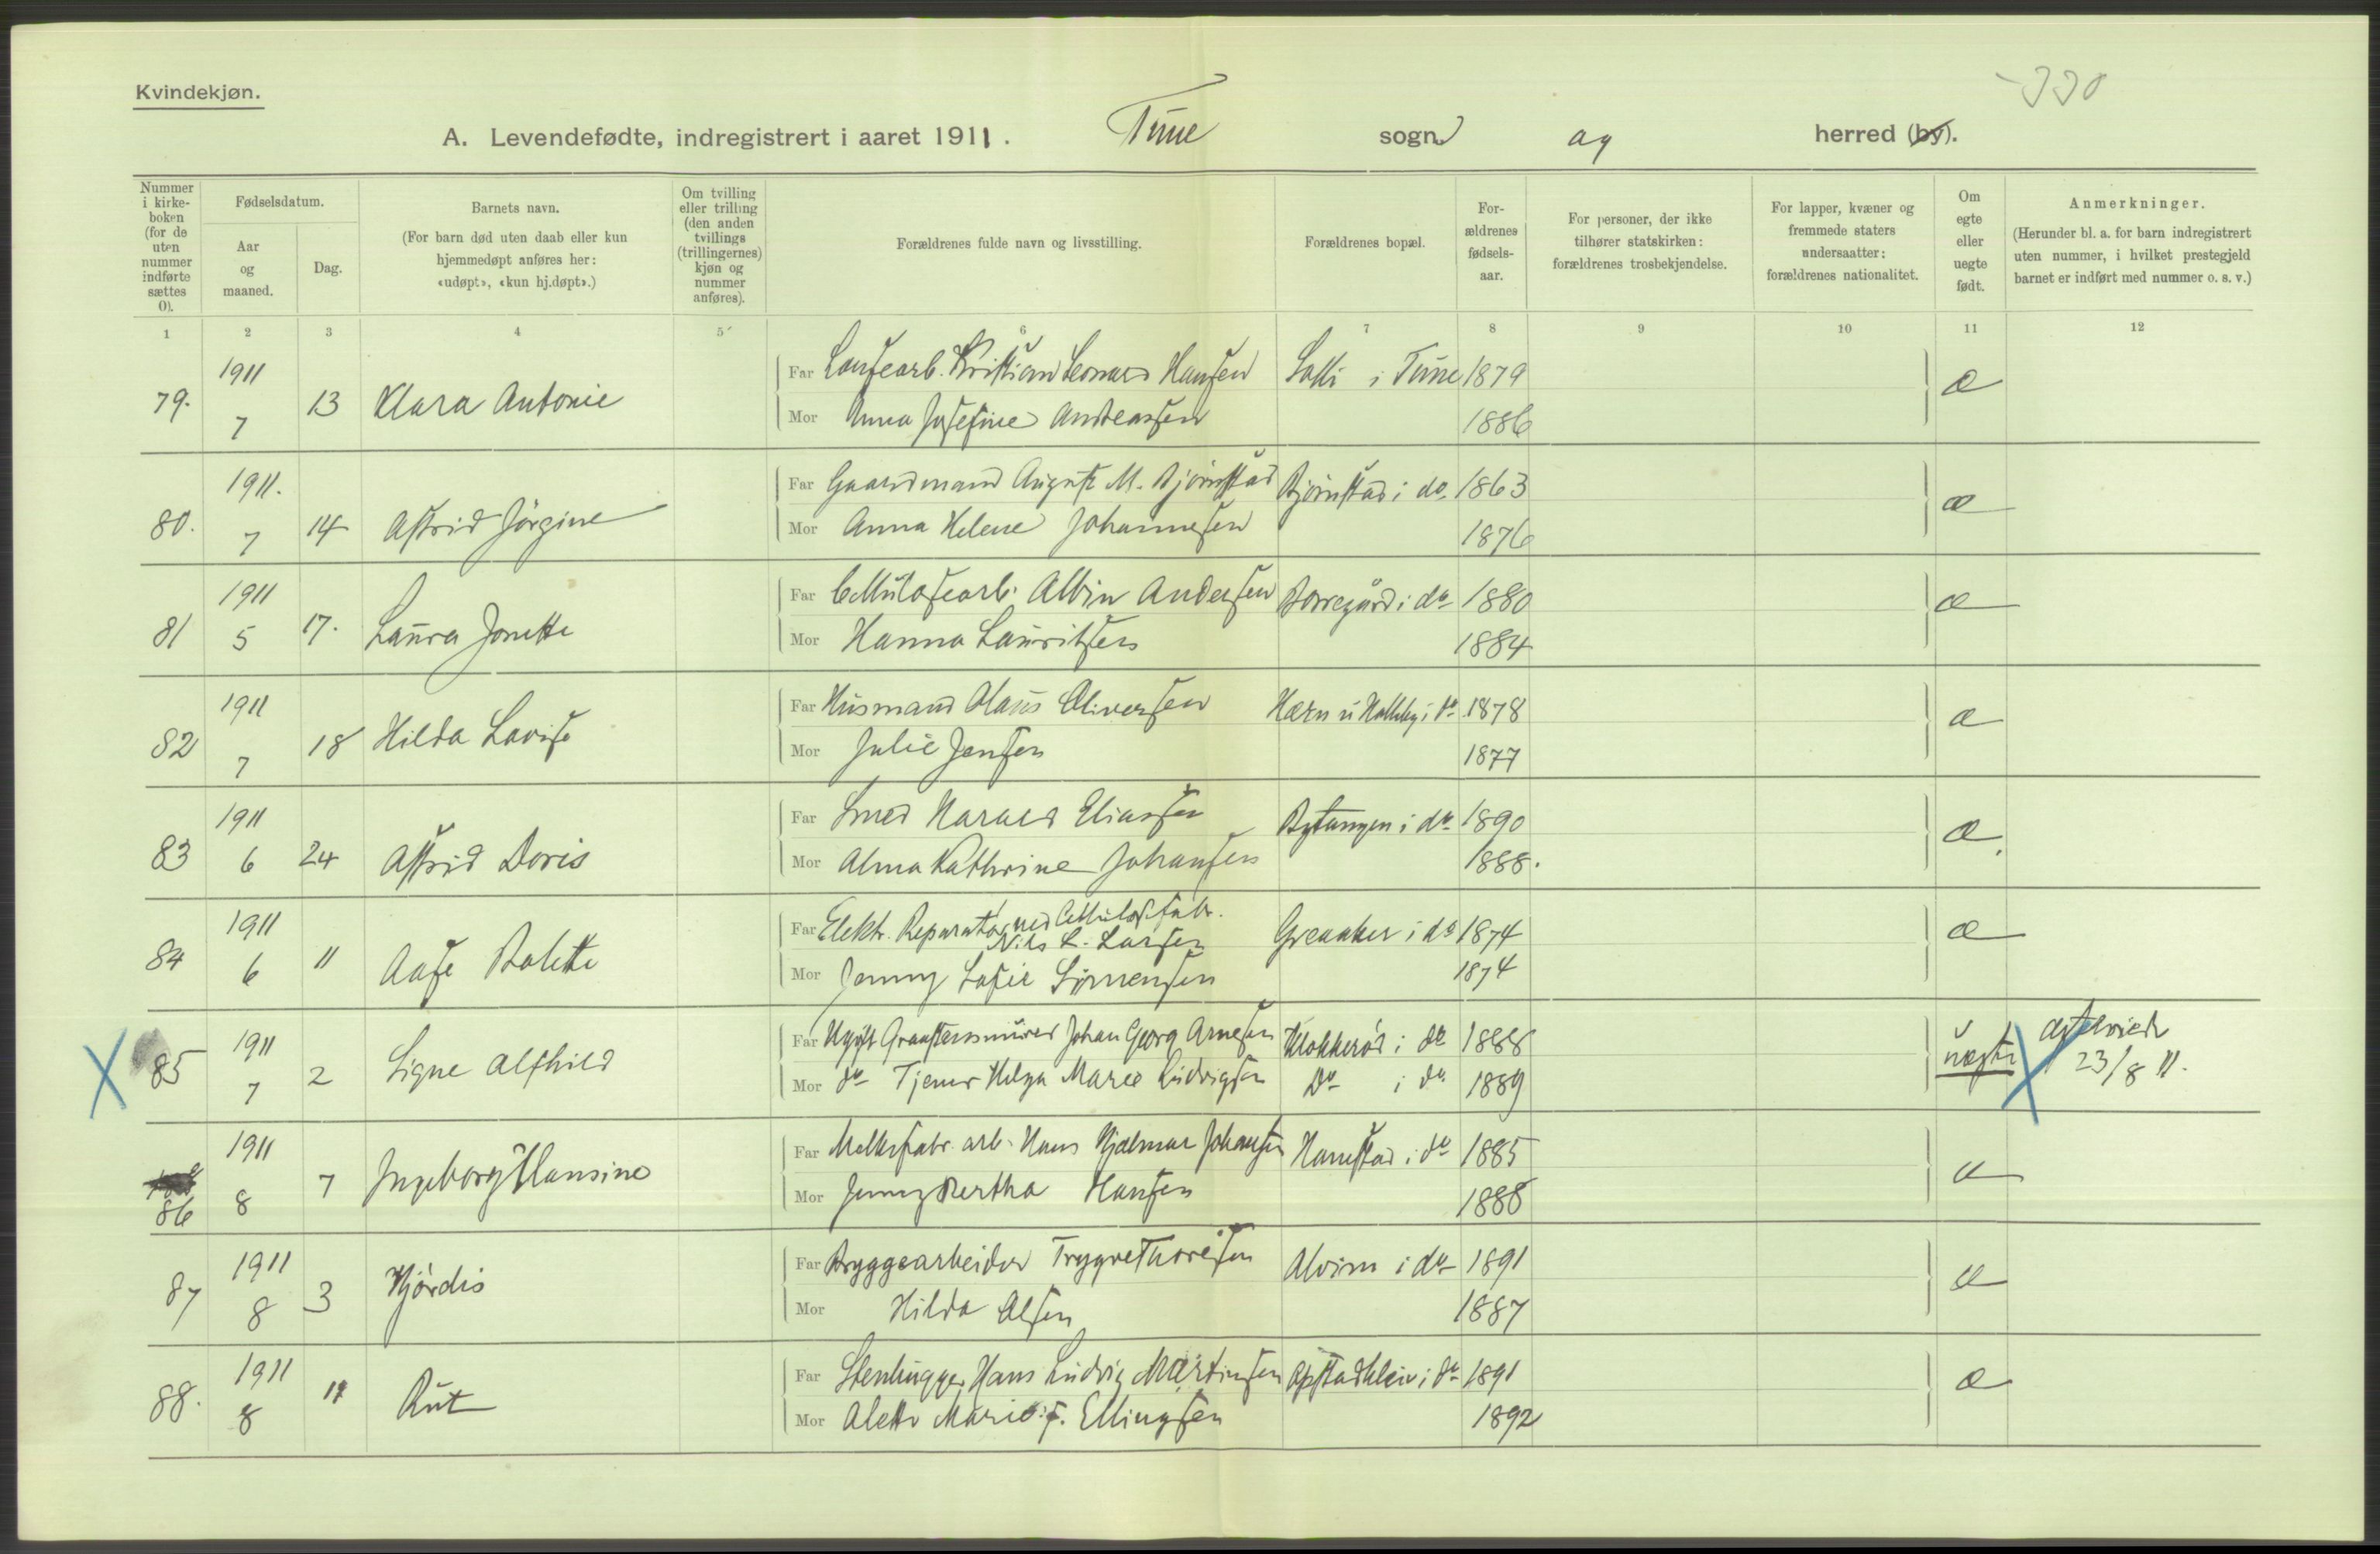 Kvindekjøn.
330
A. Levendefødte, indregistrert i aaret 1911. Tune sogn og herred (by).
Nummer i kirkeboken (for de uten nummer indførte sættes 0).
Fødselsdatum.
Aar og maaned.
Dag.
Barnets navn.
(For barn død uten daab eller kun hjemmedøpt anføres her: «udøpt», «kun hj.døpt».)
Om tvilling eller trilling (den anden tvillings (trillingernes) kjøn og nummer anføres).
Forældrenes fulde navn og livsstilling.
Forældrenes bopæl.
Forældrenes fødselsaar.
For personer, der ikke tilhører statskirken: forældrenes trosbekjendelse.
For lapper, kvæner og fremmede staters undersaatter: forældrenes nationalitet.
Om egte eller uegte født.
Anmerkninger.
(Herunder bl. a. for barn indregistrert uten nummer, i hvilket prestegjeld barnet er indført med nummer o. s. v.)
1 2 3 4 5 6 7 8 9 10 11 12
79. 1911 7 13 Klara Antonie
Far Lousearb. Kristian Leonard Hansen i Tune 1879 æ
Mor Anna Josefine Andreassen 1886
80. 1911. 7 14 Astrid Jörgine
Far Gaardmand August M. Bjørnstad Bjørnstad i do 1863 æ
Mor Anna Helene Johannesen 1876
81 1911 5 17. Laura Jonette
Far Cellulosearb. Albin Andersen Borregård i do 1880 æ
Mor Hanna Lauritsen 1884
82 1911 7 18 Hilda Lovise
Far Husmand Olaus Oliversen Hærn u Halleby i do 1878 æ
Mor Julie Jensen 1877
83 1911 6 24 Astrid Doris
Far Smed Harald Eliassen Bytangen i do 1890 æ.
Mor Alma Kathrine Johansen 1888.
84 1911 6 11 Aase Bolette
Far Elektr. Reparatør ved Cellulosefabr. Nils L. Larsen Greaaker i do 1874 æ
Mor Jenny Sofie Sørrensen 1874
X 85 1911 7 2 Signe Alfhild
Far Ugift Graastensmurer Johan Georg Arnesen Klokkerød i do 1888 uegte X 23/8 11.
Mor do Tjener Helga Marie Ludvigsen Do i do 1889
86 1911 8 7 Ingeborg Hansine
Far Melkefabr. arb. Hans Hjalmar Johansen Hanestad i do 1885 æ
Mor Jenny Bertha Hansen 1888
87 1911 8 3 Hjördis
Far Bryggearbeider Trygve Thoresen Alvim i do 1891 æ
Mor Hilda Olsen 1887
88. 1911 8 11 Rut
Far Stenhugger Hans Ludvig Martinsen Opstadkleiv i do 1891 æ
Mor Alette Marie f. Ellingsen 1892